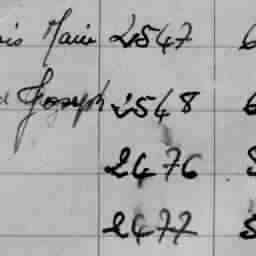 Marie 2547 6
Joseph 2548 6
2476
2477